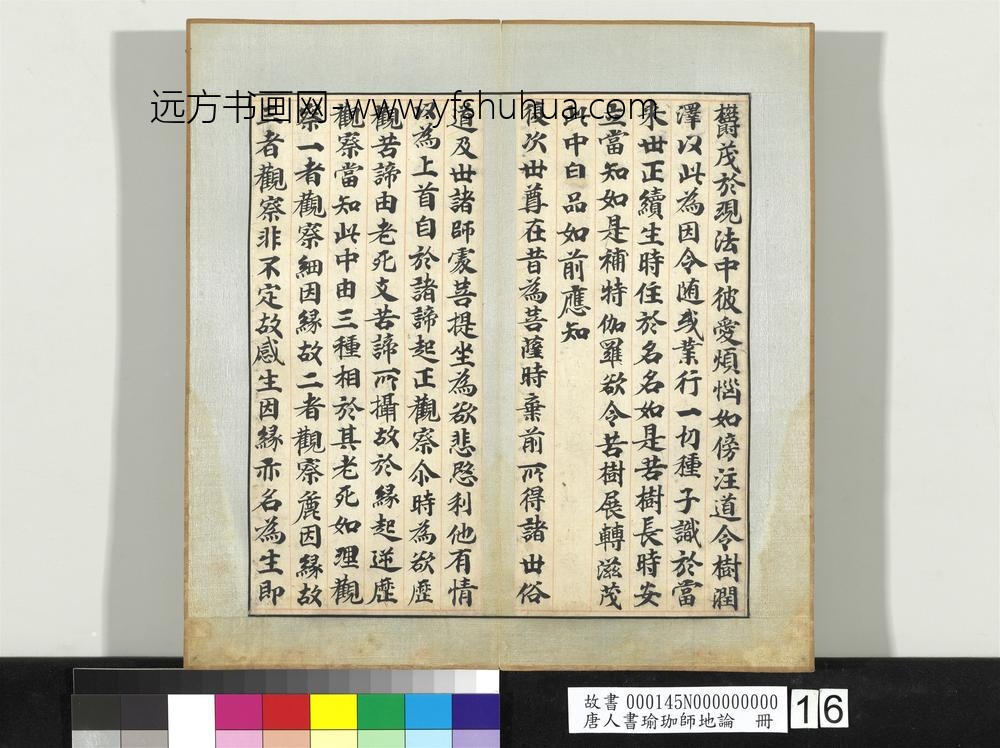 远方书画网-www.yfshuhua.com
欝茂於現法中彼愛煩惱如傍注道令樹潤
澤以此為因令随或業行一切種子識於當
来世正續生時住於名名如是苦樹長時安
立當知如是補特伽羅欲令苦樹展轉滋茂
此中白品如前應知
復次世尊在昔為菩薩時棄前所得諸世俗
道及世諸師處菩提坐為欲悲愍利他有情
以為上首自於諸諦起正觀察尒時為欲歷
觀苦諦由老死支苦諦所攝故於緣起逆歷
觀察當知此中由三種相於其老死如理觀
察一者觀察細因緣故二者觀察麁因緣故
三者觀察非不定故感生因緣亦名為生即
故書 000145N000000000
唐人書瑜珈師地論 冊
16